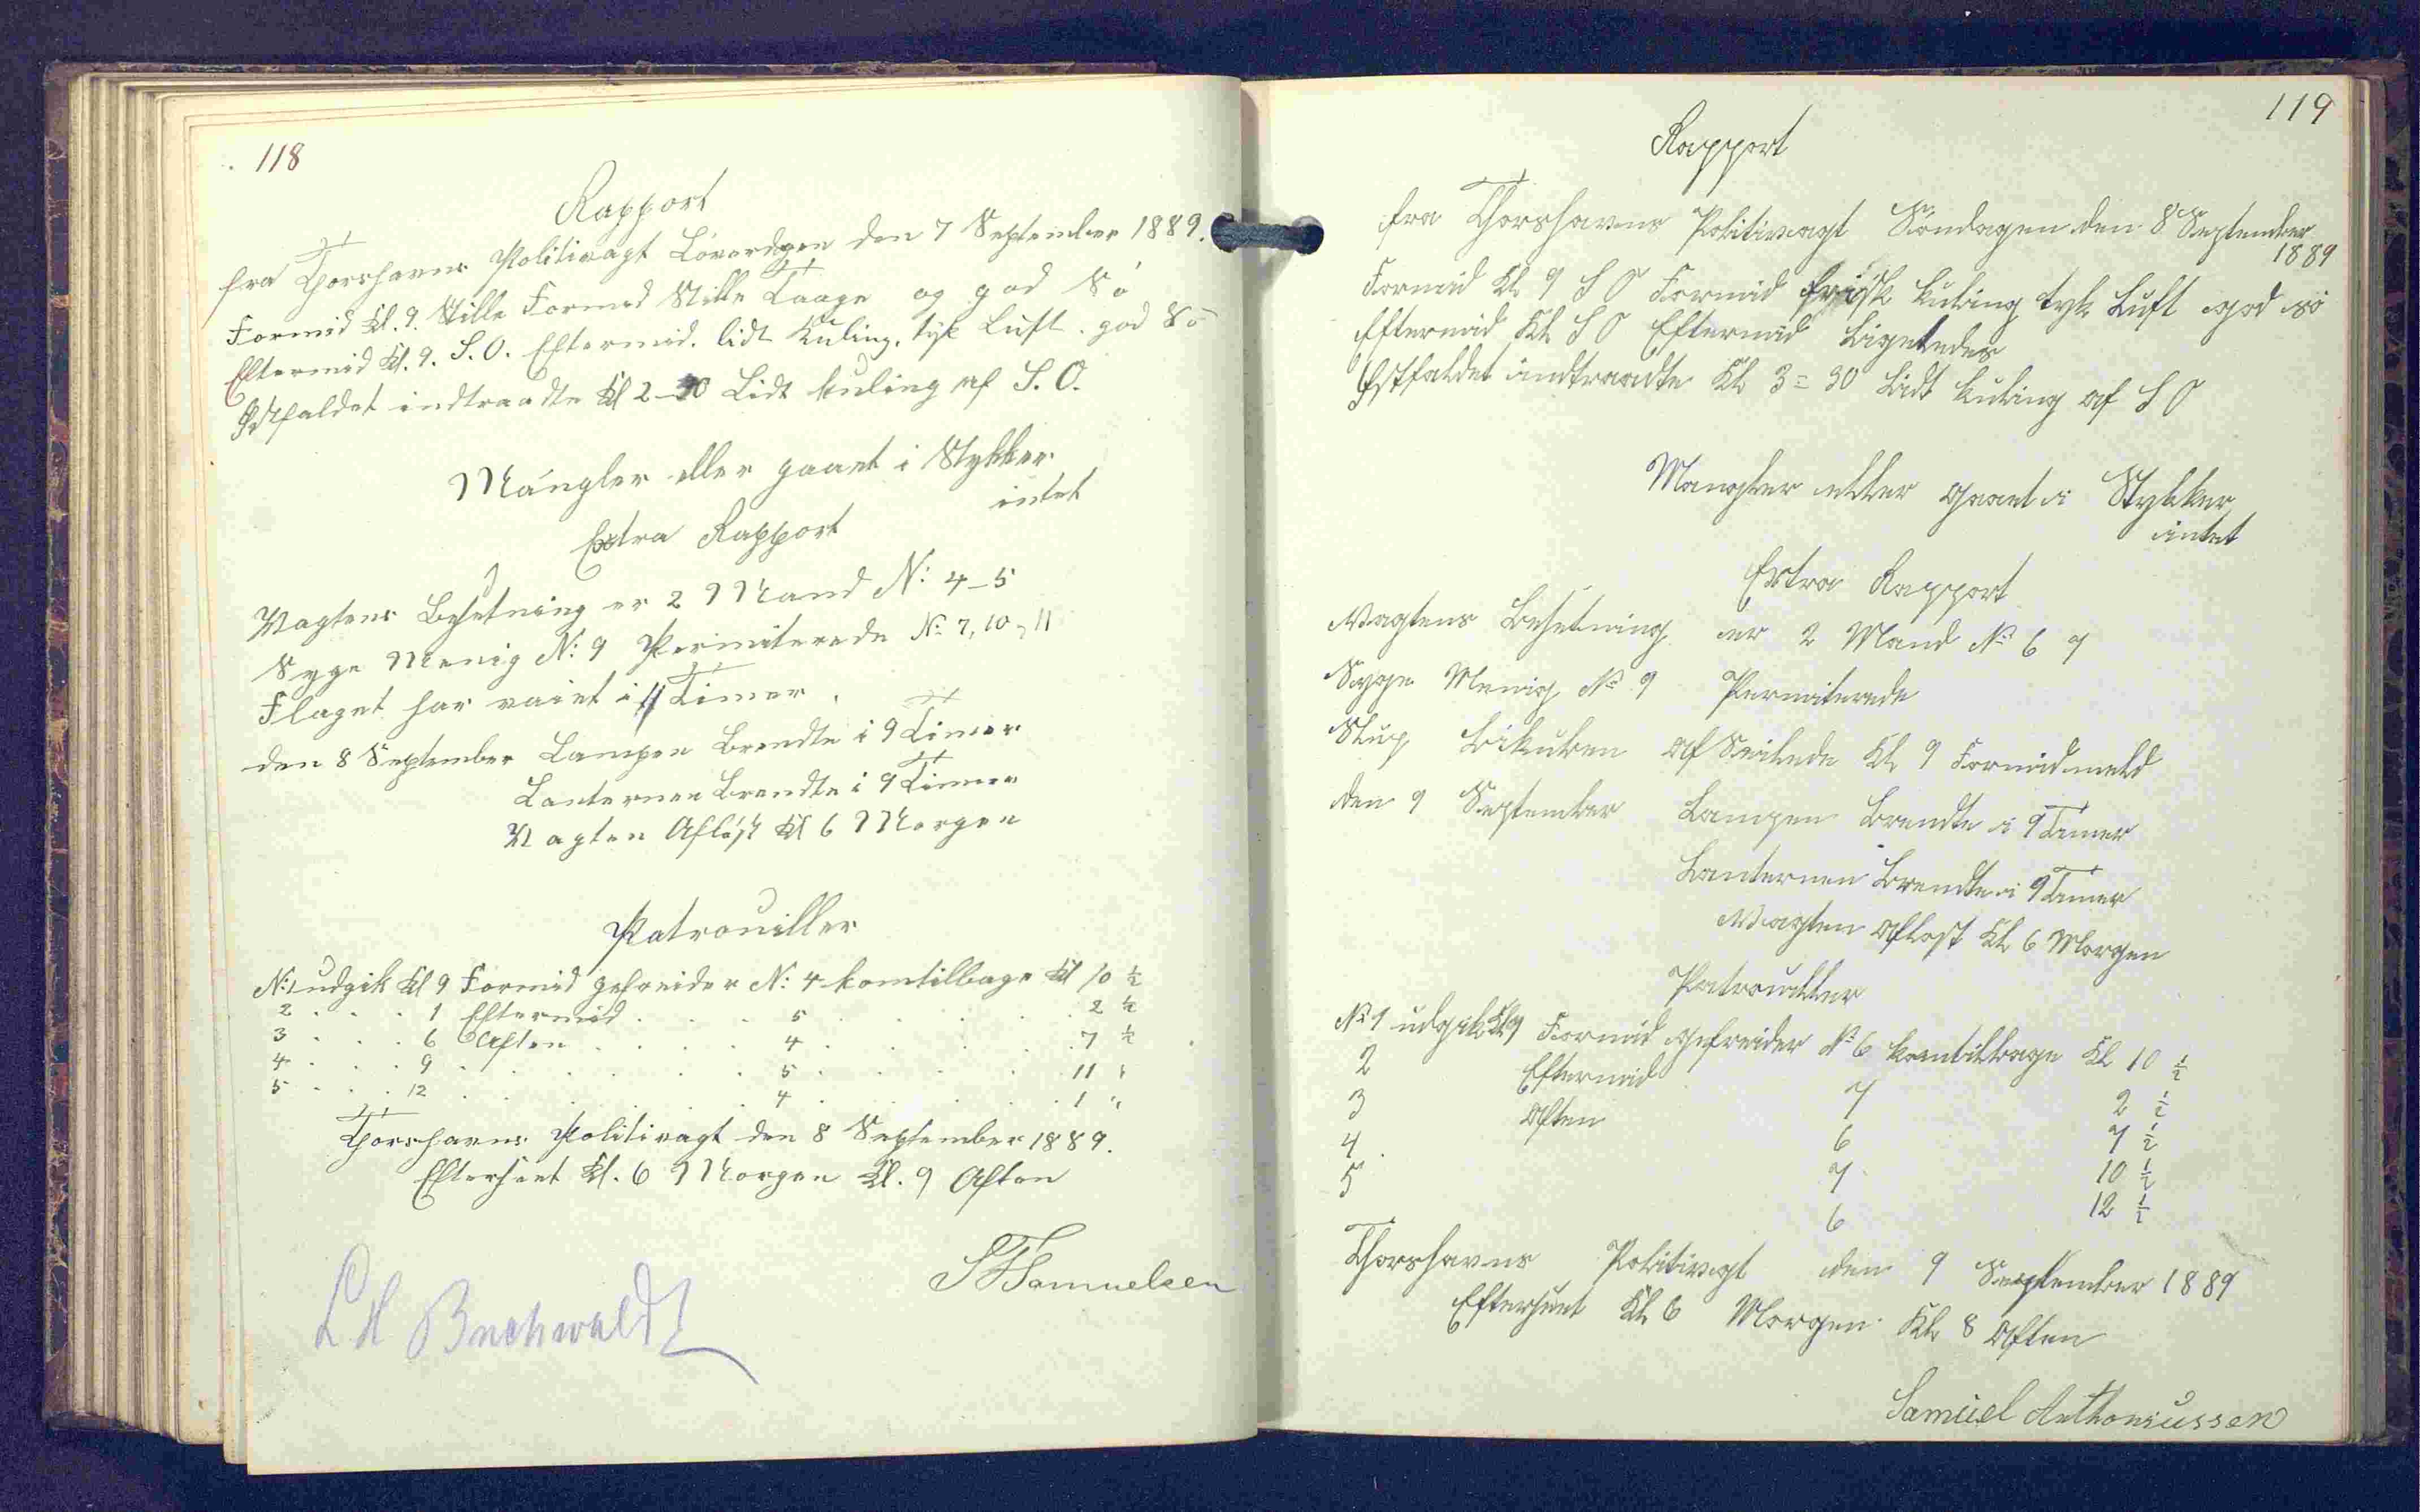 118
Rapport
fra Thorshavns Politivagt Löverdagen den 7 September 1889.
Formid Kl. 9. Stille Formid Stille Taage og god Sö
Eftermid Kl. 9. S.O. Eftermid. lidt Kuling, tyk Luft. god Sö
Østfaldet indtraadte Kl 2-30 Lidt kuling af S.O.
Mangler eller gaaet i Stykker
intet
Extra Rapport
Vagtens Besetning er 2 Mand N: 4-5
Syge Menig N: 9 Permiterede No 7, 10, 11
Flaget har vaiet i 11 Timer.
den 8 September Lampen Brendte i 9 Timer
Lanternen Brendte i 9 Timer
Vagten Aflöst Kl 6 Morgen
Patrouiller
N: 1 udgik Kl 9 Formid gefreider N: 4 komtilbage Kl 10 ½
2 . . . 1 Eftermid . . . 5 . . . . . 2 ½
3 . . . 6 Aften . . . . 4 . . . . . 7 ½
4 . . . 9 . . . . . . 5 . . . . . 11 "
5 . . . 12 . . . . . . 4 . . . . . 1 "
Thorshavns Politivagt den 8 September 1889.
Efterseet Kl. 6 Morgen Kl. 9 Aften
Samuelsen
L H Buchwaldt
119
Rapport
fra Thorshavns Politivagt Söndagen den 8 September
1889
Formid Kl 9 S O Formid frisk kuling tyk Luft god sö
Eftermid Kl S O Eftermid Ligeledes
Østfaldet indtraadte Kl 3=30 Lidt kuling af S O
Mangler eller gaaet i Stykker
intet
Extra Rapport
Vagtens Besetning er 2 Mand No 6 7
Syge Menig No 9 Permiterede
Slup af Seilede Kl 9 Formid meld
den 9 September Lampen Brendte i 9 Timer
Lanternen Brendte i 9 Timer
Vagten aflöst Kl 6 Morgen
Patrouiller
No 1 udgik Kl 9 Formid gefreider No 6 komtilbage Kl 10 ½
2 Eftermid 7 2 ½
3 Aften 6 7 ½
4 7 10 ½
5 6 12 ½
Thorshavns Politivagt den 9 September 1889
Efterseet Kl 6 Morgen Kl 8 Aften
Samüel Anthoniüssen